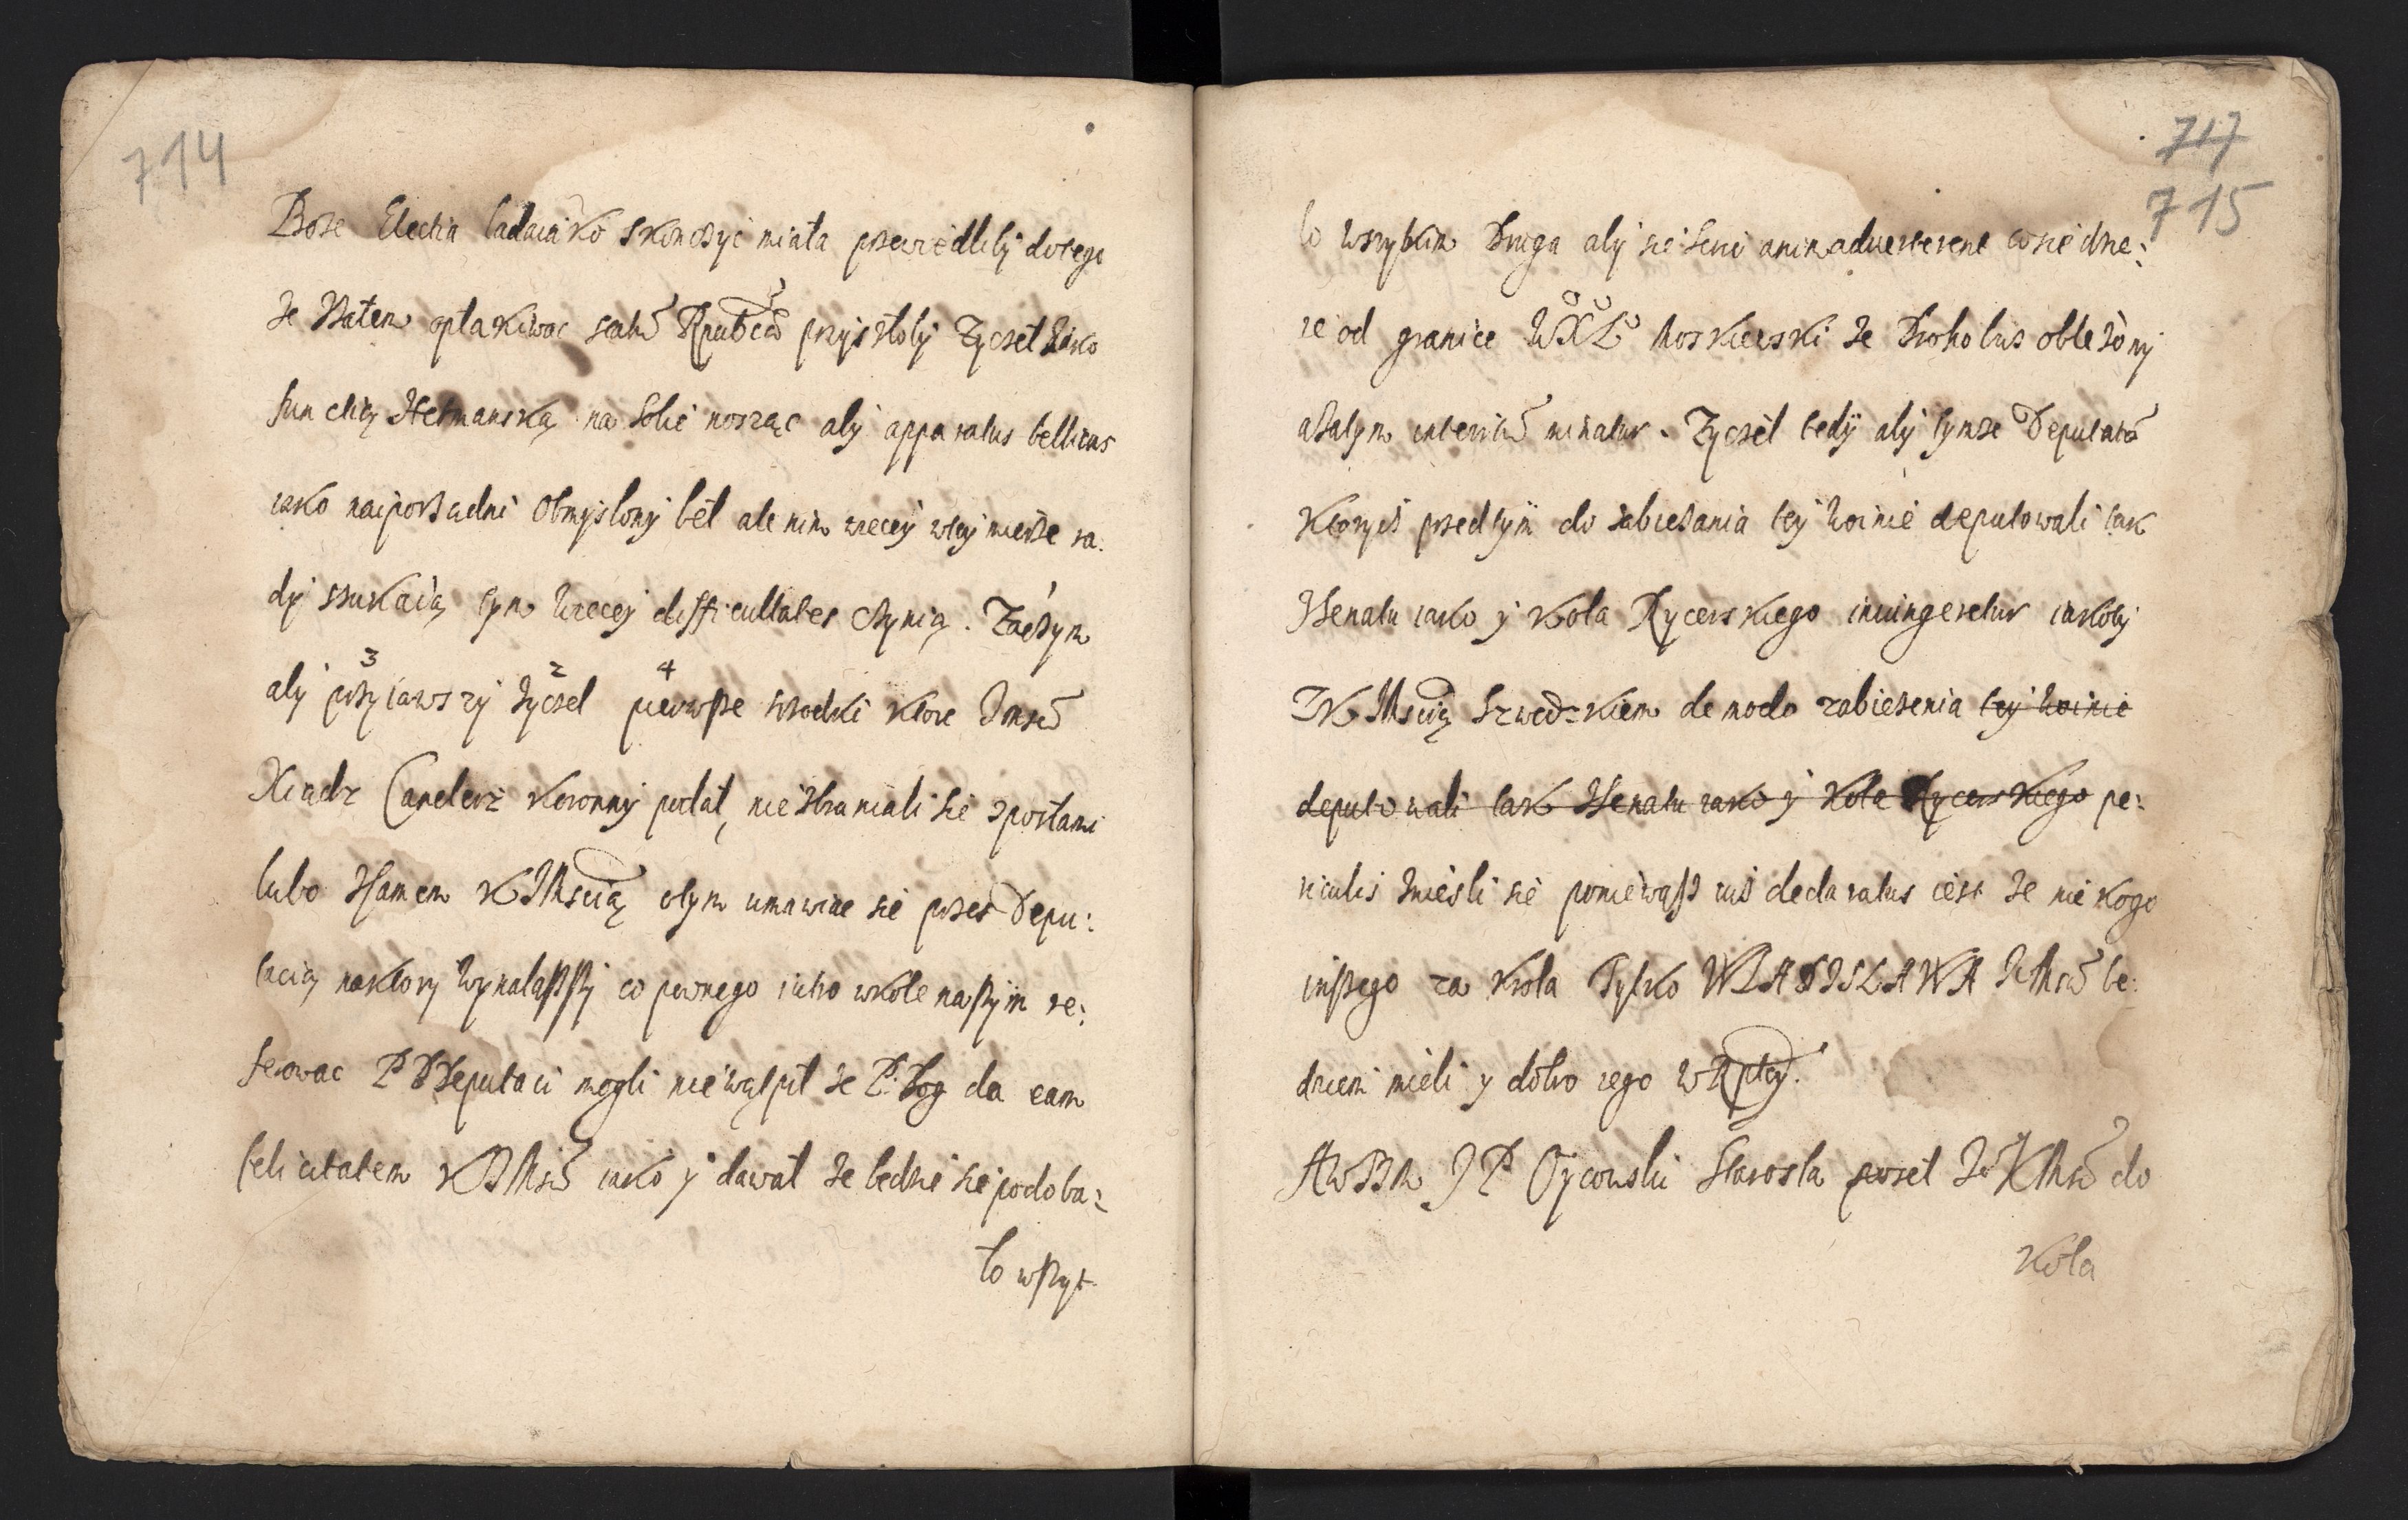 714
Boże Electia ladaiako skonczyc miała przewiedliby do tego
ze Zatem opłakiwac statū Rpubcæ przyszłoby Zyczeł Jako
functią Hetmanską na sobie nosząc aby apparatus bellicus
iako naiporządni obmyslony beł ale nim wiecey w tey mierze ra:
dy szukaią tym wiecey difficultates czynią. Zaczym
aby przyiąwszy 3 zyczeł 2 pierwsze 4 srzodki ktore Jmsc
Xiądz Canclerz Koronny podał, nie zbraniali sie z posłami
lubo Samem KJMscią o tym umawiac sie przes Depu:
tacią na ktory wynalaszszy co pewnego iutro w kole naszym re:
ferowac PP Deputaci mogli nie wątpił ze P. Bog da eam
felicitatem KJMsc iako y dawał ze bedzie sie podoba:
ło wszyt
717
715
ło wszytkim Druga aby sie serio animadverterent co sie dzie:
ie od granice WXL Moskiewski ze Drohobus oblężony
a zatym interitū minatur. Zyczeł tedy aby tymze Deputatō
ktorych przed tym do zabiezania tey woinie deputowali tak
Senatu iako y Koła Rycerskiego iniungeretur iakoby
ZKJMscią Szwedzkiem de modo zabiezenia tey woinie
deputowali tak Senatu iako y Koła Rycerskiego pe:
riculis zniesli sie poniewasz iusz declaratus iest ze nie kogo
inszego za Krola Tylko WLADISLAWA JeMsc be:
dziem mieli y dobro iego w Rptey.
A w tym JP Oycowski Starosta poseł JeKMsc do
Koła